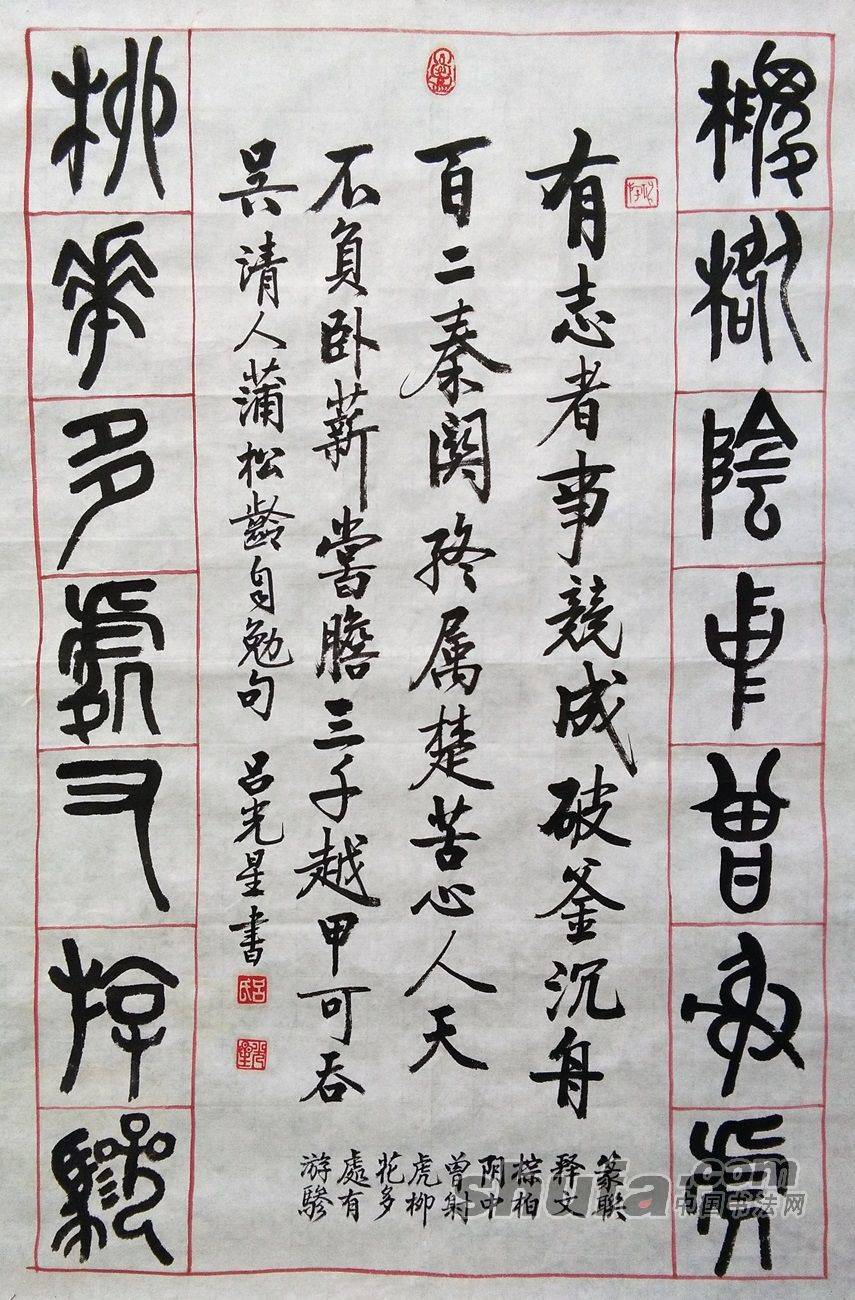 椶陰中曾射虎
有志者事競成破釜沉舟
百二秦関终属楚苦心人天
不負卧薪嘗膽三千越甲可吞
吴清人蒲松齡自勉句 吕光星書
吕氏
光星
柳華多處又游驂
篆联
释文
棕柏
阴中
曾射
虎柳
花多
處有
游驂
shufa.com
中国书法网